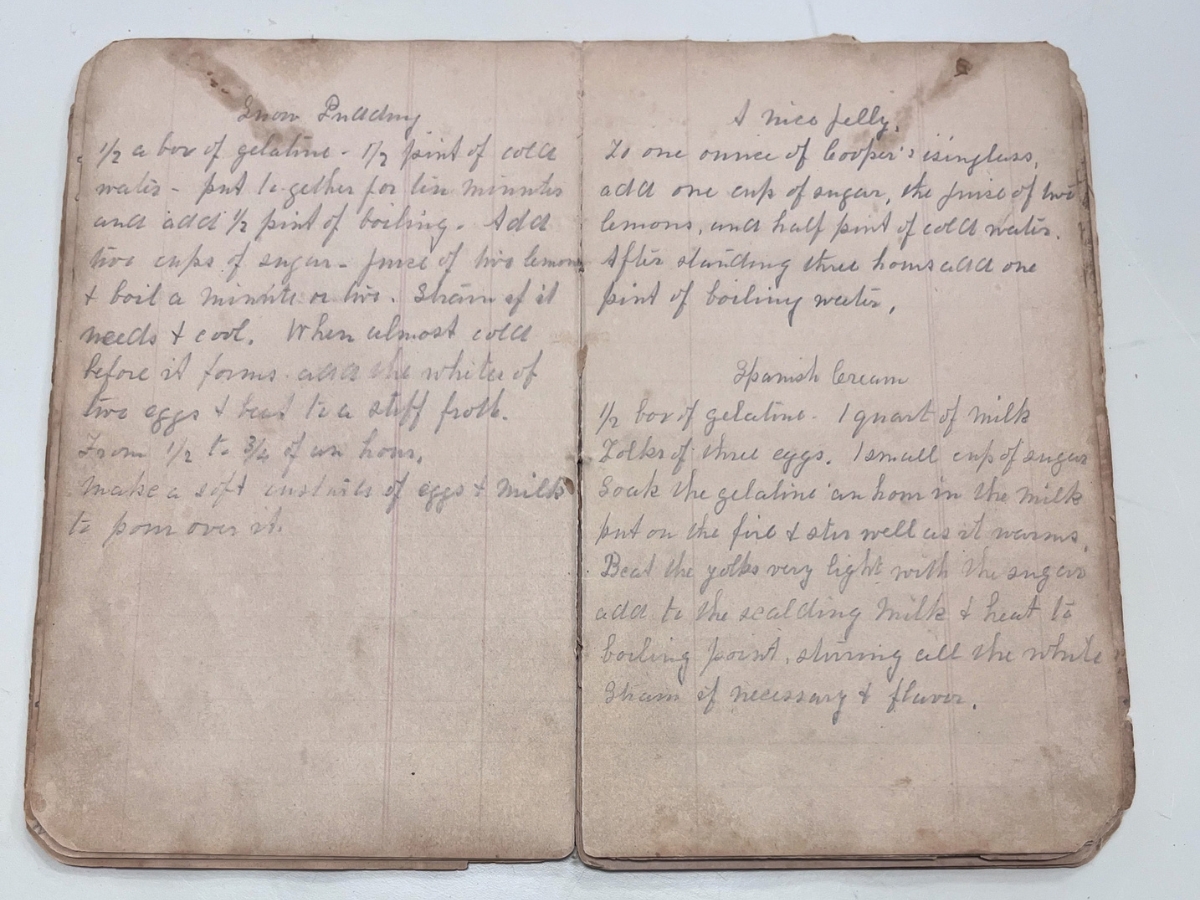 Snow Pudding
1/2 a box of gelatine - 1/2 pint of cold
water - put to-gether for ten minutes
and add 1/2 pint of boiling. Add
two cups of sugar - juice of two lemons
& boil a minute or two. Strain if it
needs & cool. When almost cold
before it forms add the whites of
two eggs & beat to a stiff froth.
From 1/2 to 3/4 of an hour.
Make a soft custard of eggs & milk
to pour over it.
A nice jelly.
To one ounce of Cooper's isinglass,
add one cup of sugar, the juise of two
lemons, and half pint of cold water.
After standing three hours add one
pint of boiling water.
Spanish Cream
1/2 box of gelatine - 1 quart of milk
Yolks of three eggs. 1 small cup of sugar
Soak the gelatine an hour in the milk
put on the fire & stir well as it warms.
Beat the yolks very light with the sugar
add to the scalding milk & heat to
boiling point, stirring all the while
Strain if necessary & flavor.